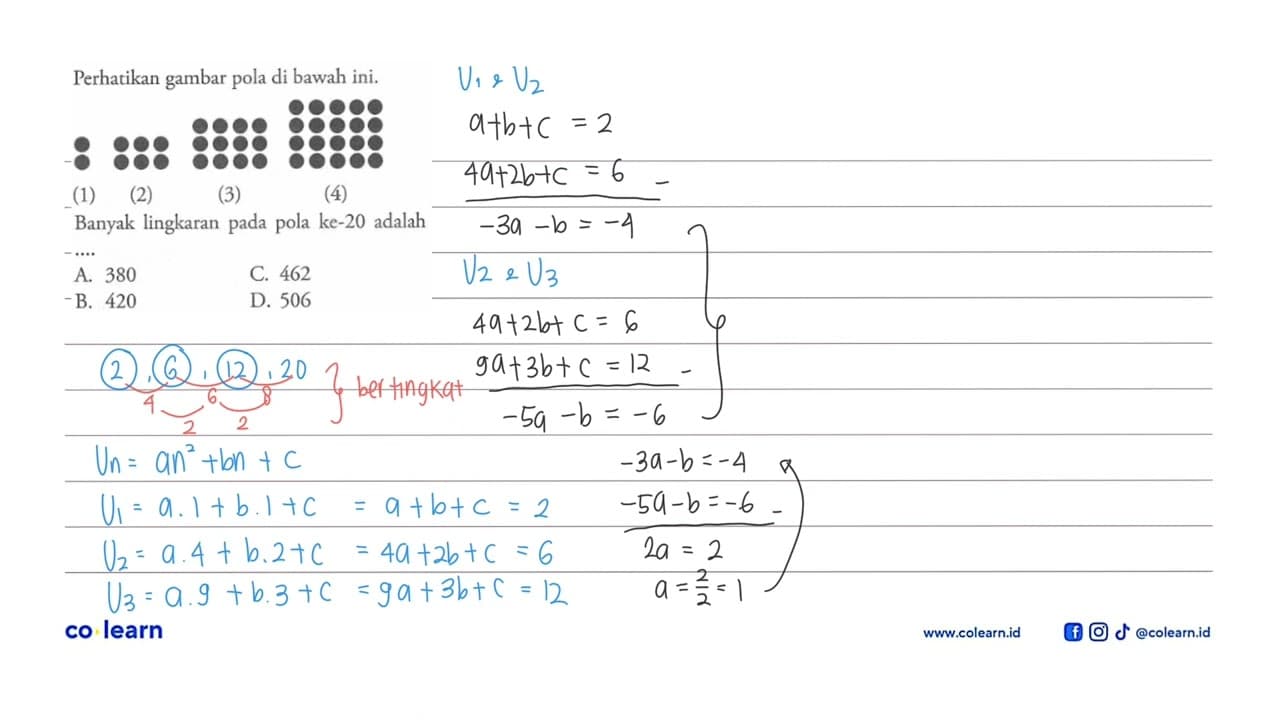 Perhatikan gambar pola di bawah ini.
(1) (2) (3) (4)
Banyak lingkaran pada pola ke-20 adalah
....
A. 380 C. 462
B. 420 D. 506
2, 6, 12, 20 } bertingkat
4 6 8
2 2
Un = an² + bn + c
U₁ = a.1 + b.1 + c = a + b + c = 2
U₂ = a.4 + b.2 + c = 4a + 2b + c = 6
U₃ = a.9 + b.3 + c = 9a + 3b + c = 12
U₁ & U₂
a+b+c = 2
4a+2b+c = 6 -
-3a - b = -4
U₂ & U₃
4a+2b+c = 6
9a+3b+c = 12 -
-5a - b = -6
-3a-b = -4
-5a-b = -6 -
2a = 2
a = 2/2 = 1
co learn
www.colearn.id
@colearn.id